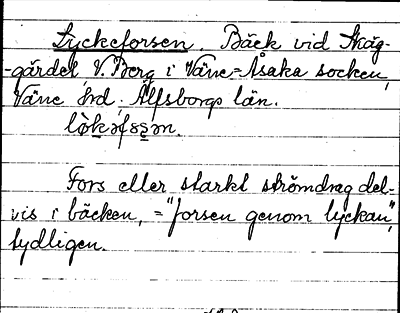 Lyckeforsen. Bäck vid Skäg-
-gärdet, V. Berg i Väne-Åsaka socken,
Väne hrd, Älfsborgs län.
Fors eller starkt strömdrag del-
vis i bäcken, = "forsen genom lyckan",
tydligen.